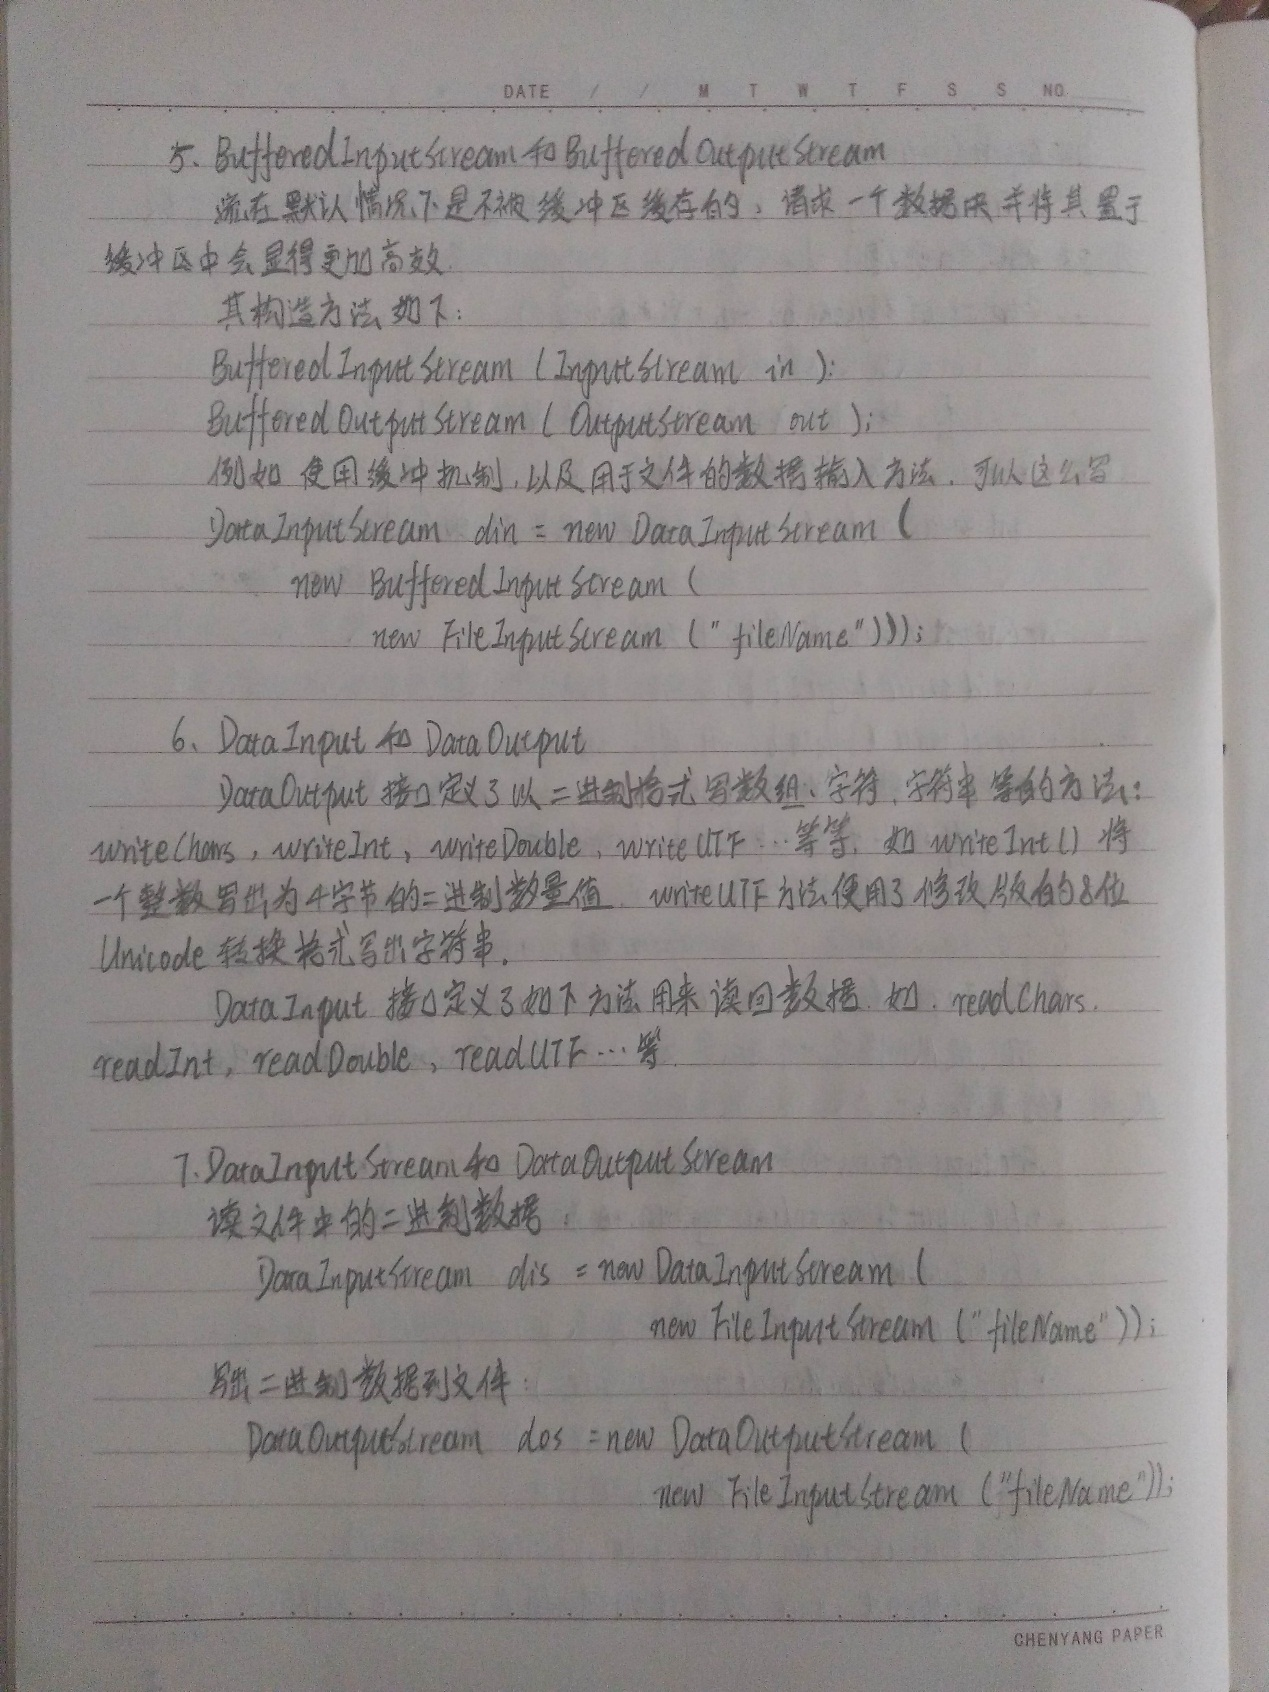 DATE / / M T W T F S S NO.
5、BufferedInputStream和BufferedOutputStream
流在默认情况下是不被缓冲区缓存的，请求一个数据块并将其置于
缓冲区中会显得更加高效.
其构造方法如下：
BufferedInputStream (InputStream in );
BufferedOutputStream ( OutputStream out );
例如 使用缓冲机制，以及用于文件的数据输入方法，可以这么写
DataInputStream din = new DataInputStream (
new BufferedInputStream (
new FileInputStream ("fileName")));
6、DataInput 和 DataOutput
DataOutput 接口定义了以二进制格式写数组、字符、字符串等的方法：
writeChars，writeInt，writeDouble、writeUTF…等等. 如 writeInt() 将
一个整数写出为4字节的二进制数量值. writeUTF方法使用了修改版的8位
Unicode 转换格式写出字符串。
DataInput 接口定义了如下方法用来读回数据. 如. readChars.
readInt，readDouble，readUTF…等.
7.DataInputStream和 DataOutputStream
读文件中的二进制数据：
DataInputStream dis = new DataInputStream (
new FileInputStream ("fileName"));
写出二进制数据到文件：
DataOutputStream dos = new DataOutputStream (
new FileInputStream ("fileName"));
CHENYANG PAPER